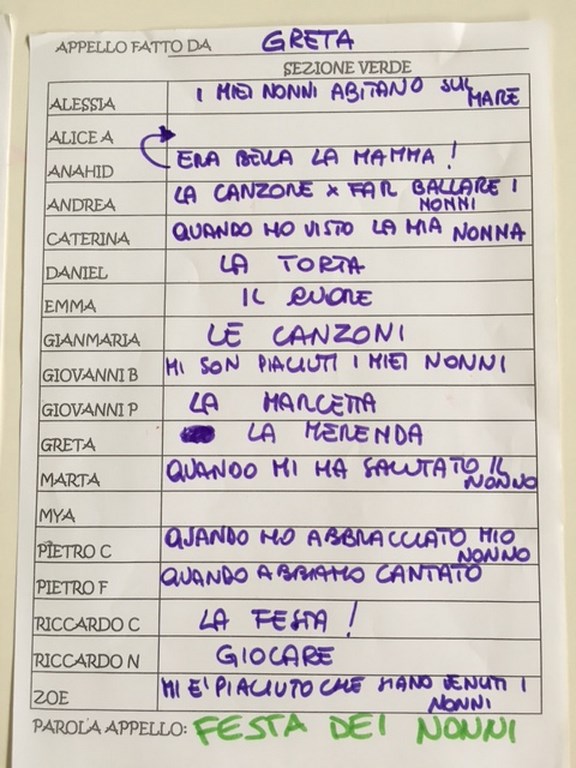 APPELLO FATTO DA GRETA
SEZIONE VERDE
ALESSIA I MIEI NONNI ABITANO SUL MARE
ALICE A
ANAHID ERA BELLA LA MAMMA !
ANDREA LA CANZONE x FAR BALLARE I NONNI
CATERINA QUANDO HO VISTO LA MIA NONNA
DANIEL LA TORTA
EMMA IL CUORE
GIANMARIA LE CANZONI
GIOVANNI B MI SON PIACIUTI I MIEI NONNI
GIOVANNI P LA MARCETTA
GRETA LA MERENDA
MARTA QUANDO MI HA SALUTATO IL NONNO
MYA
PIETRO C QUANDO HO ABBRACCIATO MIO NONNO
PIETRO F QUANDO ABBIAMO CANTATO
RICCARDO C LA FESTA !
RICCARDO N GIOCARE
ZOE MI E' PIACIUTO CHE SIANO VENUTI I NONNI
PAROLA APPELLO: FESTA DEI NONNI